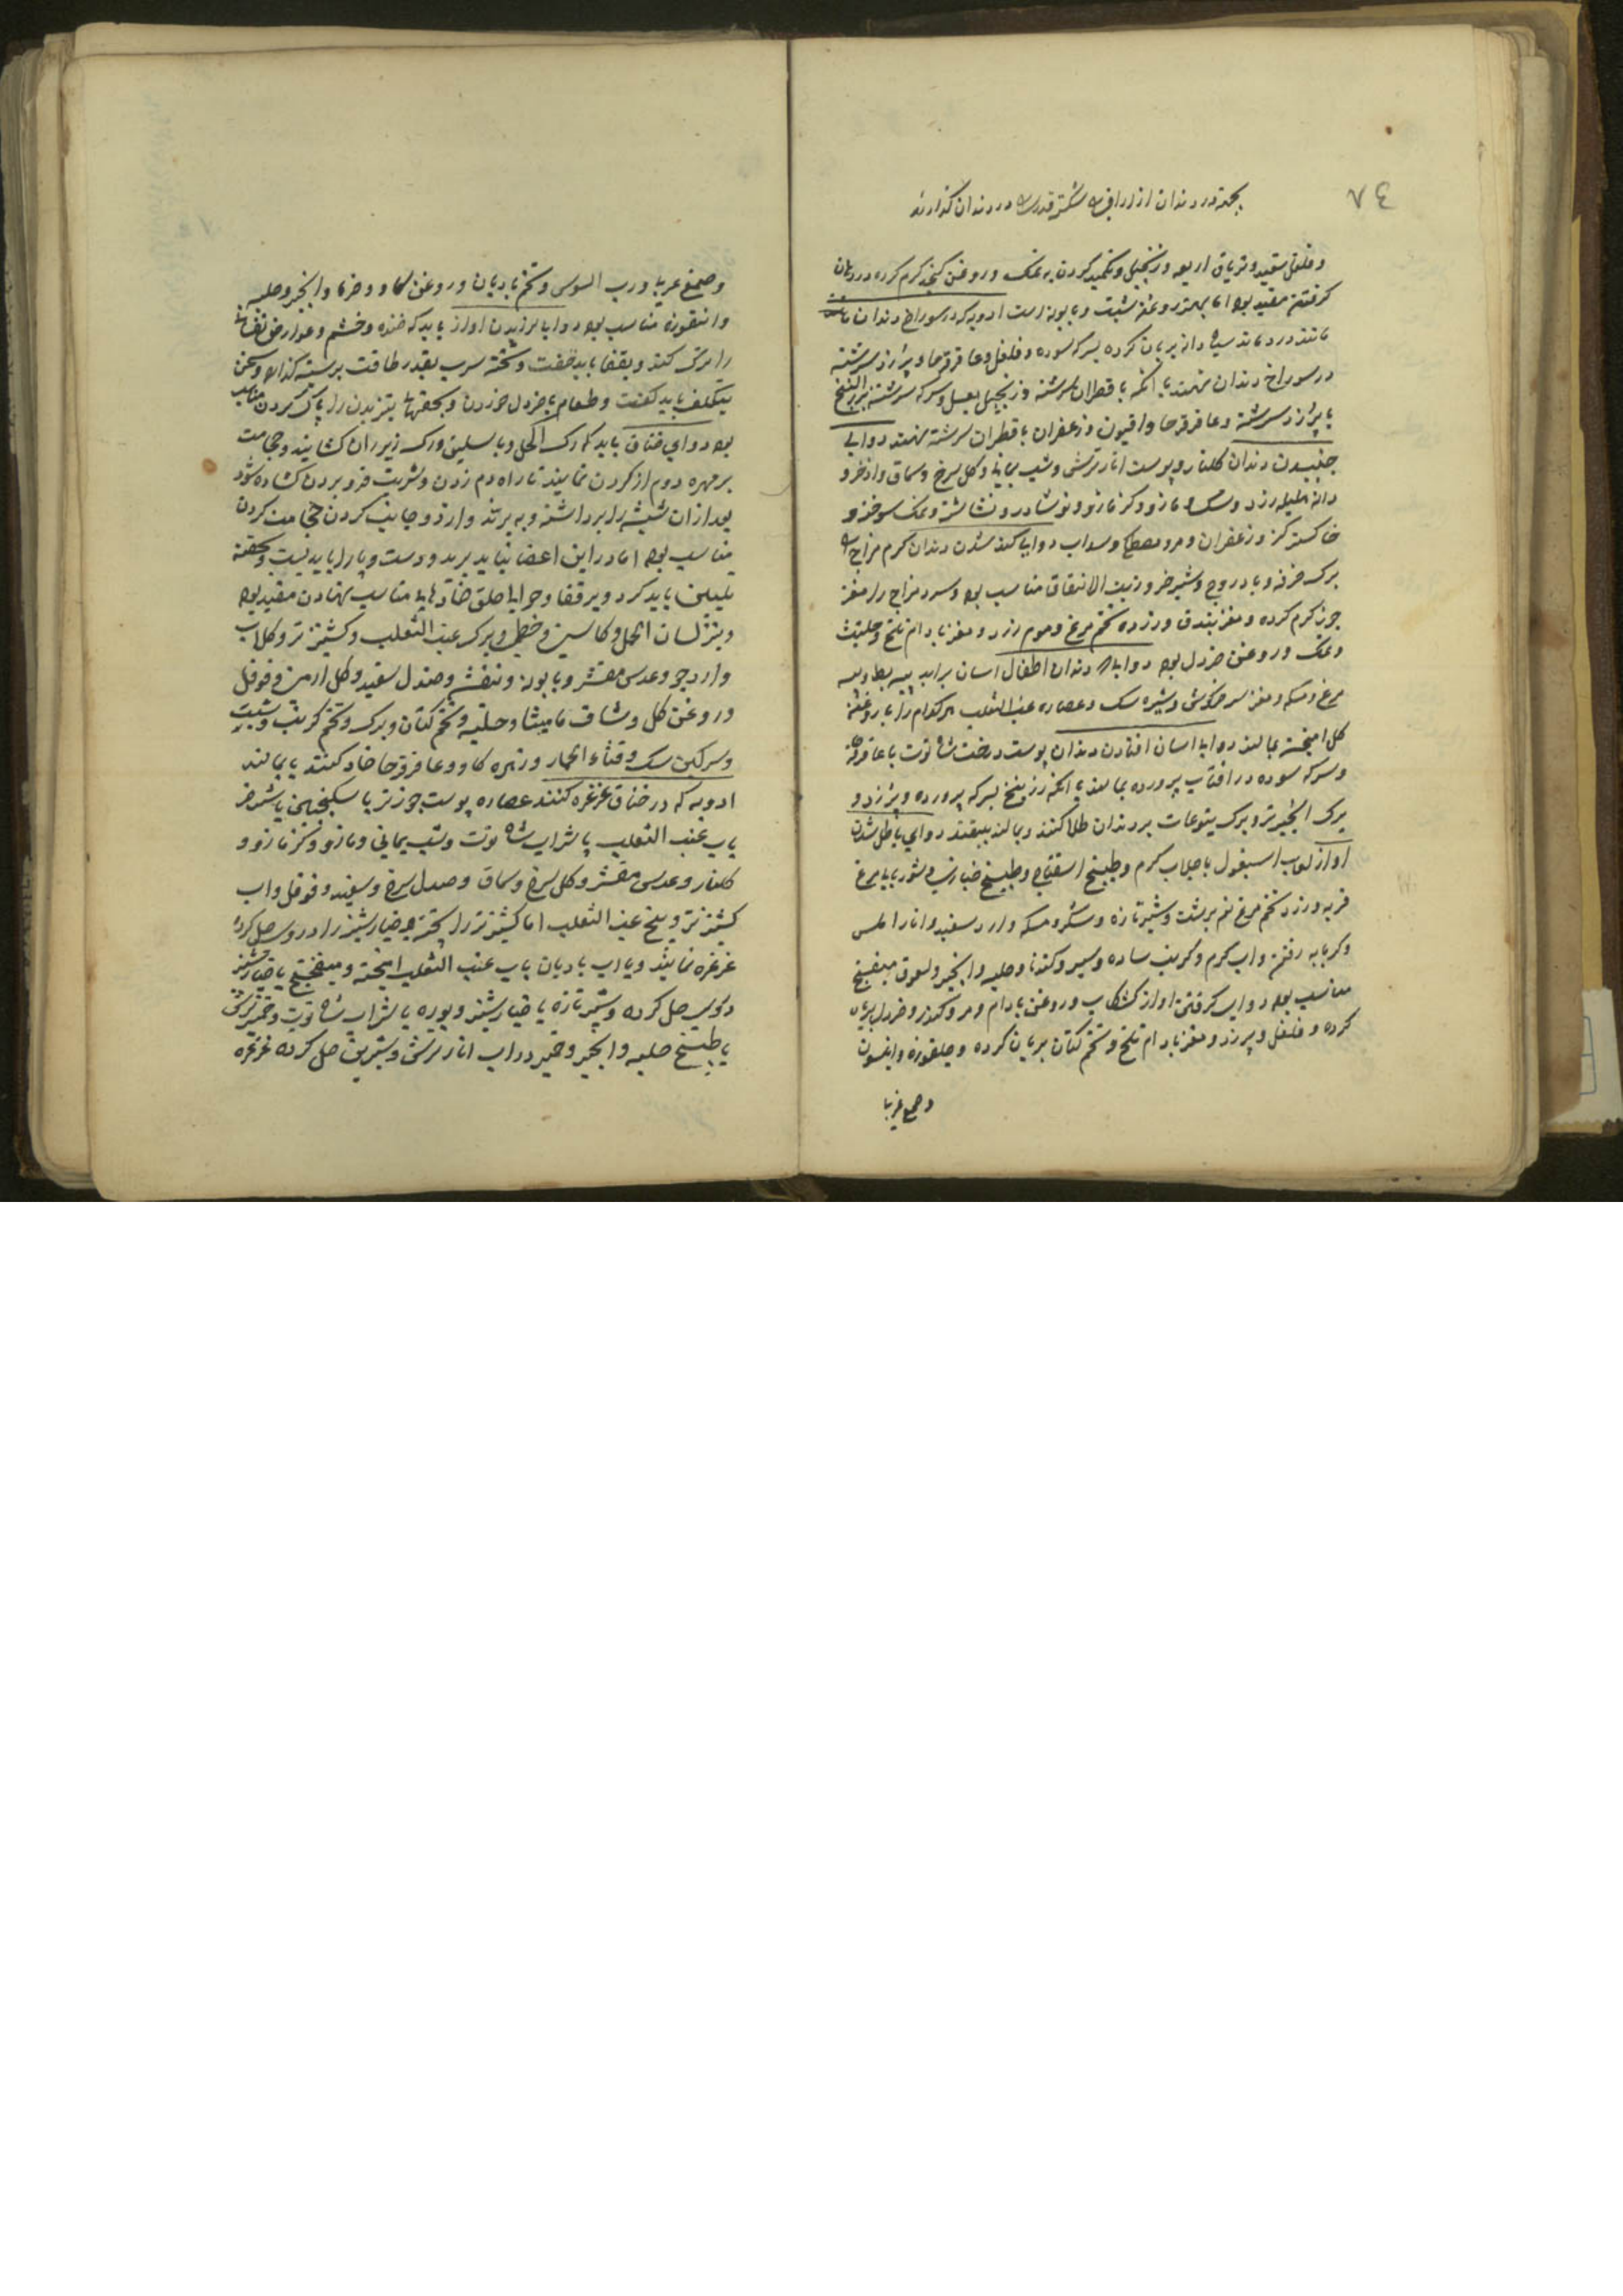 ٧٤
بجهة درد دندان در دندان گذارند
و فلفل سفید و تریاق اربعه و زنجبیل و تکمید کردن به نمک و روغن کنجد گرم کرده در دهان
گرفتن مفید بود اما بهتر روغن شبت و بابونه است ادویه که در سوراخ دندان
مانند درد بماند دانه بریان کرده بسرکه سوده و فلفل و عاقرقرحا و بیرزد سرشته
در سوراخ دندان نهند یا آنکه با قطران سرشته و زنجبیل بعسل و سرکه سرشته بزر البنج
با بیرزد سرشته و عاقرقرحا و افیون و زعفران با قطران سرشته نهند دوای
جنبیدن دندان گلنار و پوست انار ترش و شب یمانی و گل سرخ و سماق و اذخر و
دانه هلیله زرد و سک و مازو و کزمازو و نوشادر و نشاشته و نمک سوخته و
خاکستر گز و زعفران و مرو مصطکی و سداب دوای کند شدن دندان گرم مزاج
برگ خرفه و بادروج و شیر خر و زیت الانفاق مناسب بود و سرد مزاج را مغز
جوز گرم کرده و مغز فندق و زرده تخم مرغ و موم زرد و مغز بادام تلخ و حلتیت
و نمک و روغن خردل بود دوای دندان اطفال اسان براید پیه بط و پیه
مرغ و مسکه و مغز سر خرگوش و شیره سک و عصاره عنب الثعلب هرکدام را با روغن
گل امیخته بمالند دوای اسان افتادن دندان پوست درخت شاه توت با عاقرقرحا
و سرکه سوده در افتاب پرورده بمالند یا انکه زرنیخ بسرکه پرورده و بیرزد و
برگ انجیر تر و برگ یتوعات بر دندان طلا کنند و بمالند بیفتد دوای باطل شدن
اواز لعاب اسبغول با جلاب گرم و طبیخ اسفناج و طبیخ خبازی و شوربای مرغ
فربه و زرده تخم مرغ نیم برشت و شیر تازه و شکر و مسکه و ارد سفید و انار املس
و گرمابه رفتن و اب گرم و کرنب ساده و سیر و گندنا و حلبه و انجیر و لعوق میفبخ
مناسب بود دوای گرفتن اواز کشکاب و روغن بادام و مر و کندر و خردل بریان
کرده و فلفل و بیرزد و مغز بادام تلخ و تخم کتان بریان کرده و چلغوزه و انیسون
و صمغ عربی
و صمغ عربی و رب السوس و تخم بادیان و روغن گاو و خرما و انجیر و حلبه
و انقوزه مناسب بود دوای لرزیدن اواز باید که خنده و خشم و عوارض نفسانی
را ترک کند و بقفا باید خفت و تخته سرب بقدر طاقت بر سینه گذارد و سخن
بتکلف باید گفت و طعام با خردل خوردن و بحقنها بتیز بدن را پاک کردن مناسب
بود دوای خناق باید که رگ اکحل و باسلیق و رگ زیر ران گشایند و حجامت
بر مهره دوم از گردن نمایند تا راه دم زدن و شربت فرو بردن گشاده شود
بعد ازان شیشه را برداشته و به برند و ارد و جانب گردن حجامت کردن
مناسب بود اما در این اعضا نباید برید و دست و پا را باید بست و حقنه
بلیغی باید کرد و بر قفا و حوالی حلق ضمادهای مناسب نهادن مفید بود
و بنزلسان الحمل و کاسنی و خطمی و برگ عنب الثعلب و کشنیز تر و گلاب
و ارد جو و عدس مقشر و بابونه و بنفشه و صندل سفید و گل ارمنی و فوفل
و روغن گل و شیاف مامیثا و حلبه و تخم کتان و برگ و تخم کرنب و شبت
و سرگین سگ و قثاء الحمار و زهره گاو و عاقرقرحا ضماد کنند یا بمالند
ادویه که در خناق غرغره کنند عصاره پوست جوز تر یا سکنجبین یا شیر خر
یا ب عنب الثعلب یا شراب شاه توت و شب یمانی و مازو و کزمازو و
گلنار و عدس مقشر و گل سرخ و سماق و صندل سرخ و سفید و فوفل و اب
کشنیز تر و بیخ عنب الثعلب اما کشنیز تر را پخته و خیار شنبر را در وی حل کرده
غرغره نمایند و با اب بادیان با ب عنب الثعلب امیخته و میفختج با خیار شنبر
در وی حل کرده و شیر تازه با خیار شنبر و بوره یا شراب شاه توت و خمیر ترش
یا طبیخ حلبه و انجیر و خمیر در اب انار ترش و شیرین حل کرده غرغره